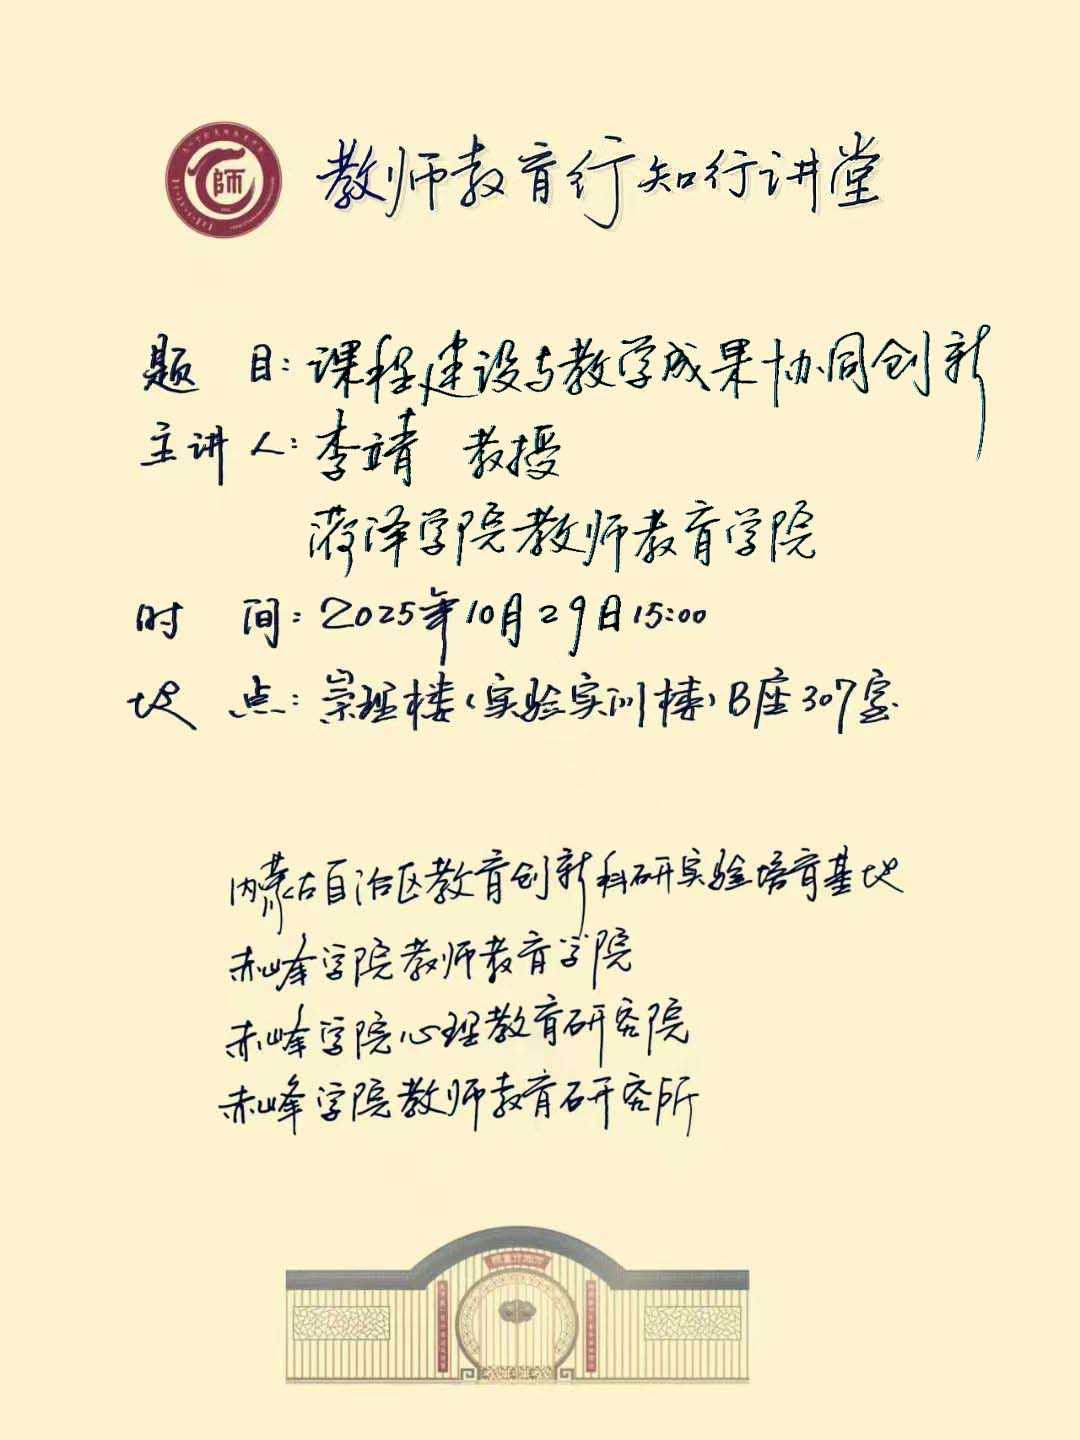 師
教师教育行知行讲堂
题 目：课程建设与教学成果协同创新
主讲人：李靖 教授
菏泽学院教师教育学院
时 间：2025年10月29日15:00
地 点：崇理楼（实验实训楼）B座307室
内蒙古自治区教育创新科研实验培育基地
赤峰学院教师教育学院
赤峰学院心理教育研究院
赤峰学院教师教育研究所